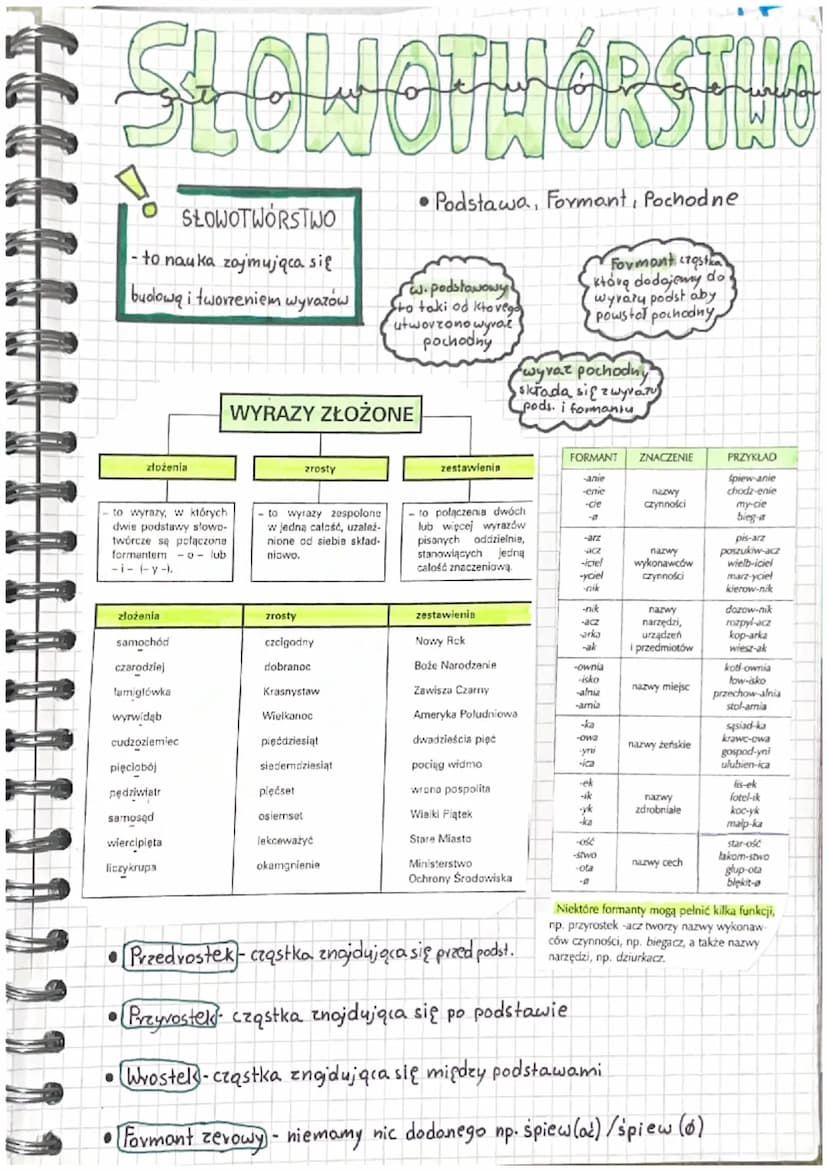 SŁOWOTWÓRSTWO
słowotwórstwo
SŁOWOTWÓRSTWO
- to nauka zajmująca się
budową i tworzeniem wyrazów
• Podstawa, Formant, Pochodne
w. podstawowy
to taki od którego
utworzono wyraz
pochodny
Formont cząstka
którą dodajemy do
wyrazu podst aby
powstał pochodny
wyraz pochodny
składa się z wyrazu
pods. i formantu
WYRAZY ZŁOŻONE
złożenia
zrosty
zestawienia
– to wyrazy, w których
dwie podstawy słowo-
twórcze są połączone
formantem – o – lub
– i – (– y –).
– to wyrazy zespolone
w jedną całość, uzależ-
nione od siebie skład-
niowo.
– to połączenia dwóch
lub więcej wyrazów
pisanych oddzielnie,
stanowiących jedną
całość znaczeniową.
złożenia zrosty zestawienia
samochód czcigodny Nowy Rok
czarodziej dobranoc Boże Narodzenie
łamigłówka Krasnystaw Zawisza Czarny
wyrwidąb Wielkanoc Ameryka Południowa
cudzoziemiec pięćdziesiąt dwadzieścia pięć
pięciobój siedemdziesiąt pociąg widmo
pędziwiatr pięćset wrona pospolita
samosąd osiemset Wielki Piątek
wiercipięta lekceważyć Stare Miasto
liczykrupa okamgnienie Ministerstwo
Ochrony Środowiska
FORMANT ZNACZENIE PRZYKŁAD
-anie śpiew-anie
-enie nazwy chodz-enie
-cie czynności my-cie
-ø bieg-ø
-arz pis-arz
-acz nazwy poszukiw-acz
-iciel wykonawców wielb-iciel
-yciel czynności marz-yciel
-nik kierow-nik
-nik nazwy dozow-nik
-acz narzędzi, rozpyl-acz
-arka urządzeń kop-arka
-ak i przedmiotów wiesz-ak
-ownia kotł-ownia
-isko nazwy miejsc łow-isko
-alnia przechow-alnia
-arnia stol-arnia
-ka sąsiad-ka
-owa nazwy żeńskie krawc-owa
-yni gospod-yni
-ica ulubien-ica
-ek lis-ek
-ik nazwy fotel-ik
-yk zdrobniałe koc-yk
-ka małp-ka
-ość star-ość
-stwo nazwy cech łakom-stwo
-ota głup-ota
-ø błękit-ø
Niektóre formanty mogą pełnić kilka funkcji,
np. przyrostek -acz tworzy nazwy wykonaw-
ców czynności, np. biegacz, a także nazwy
narzędzi, np. dziurkacz.
• Przedrostek - cząstka znajdująca się przed podst.
• Przyrostek - cząstka znajdująca się po podstawie
• Wrostek - cząstka znajdująca się między podstawami
• Formant zerowy - niemamy nic dodanego np. śpiew(ać) / śpiew (ø)